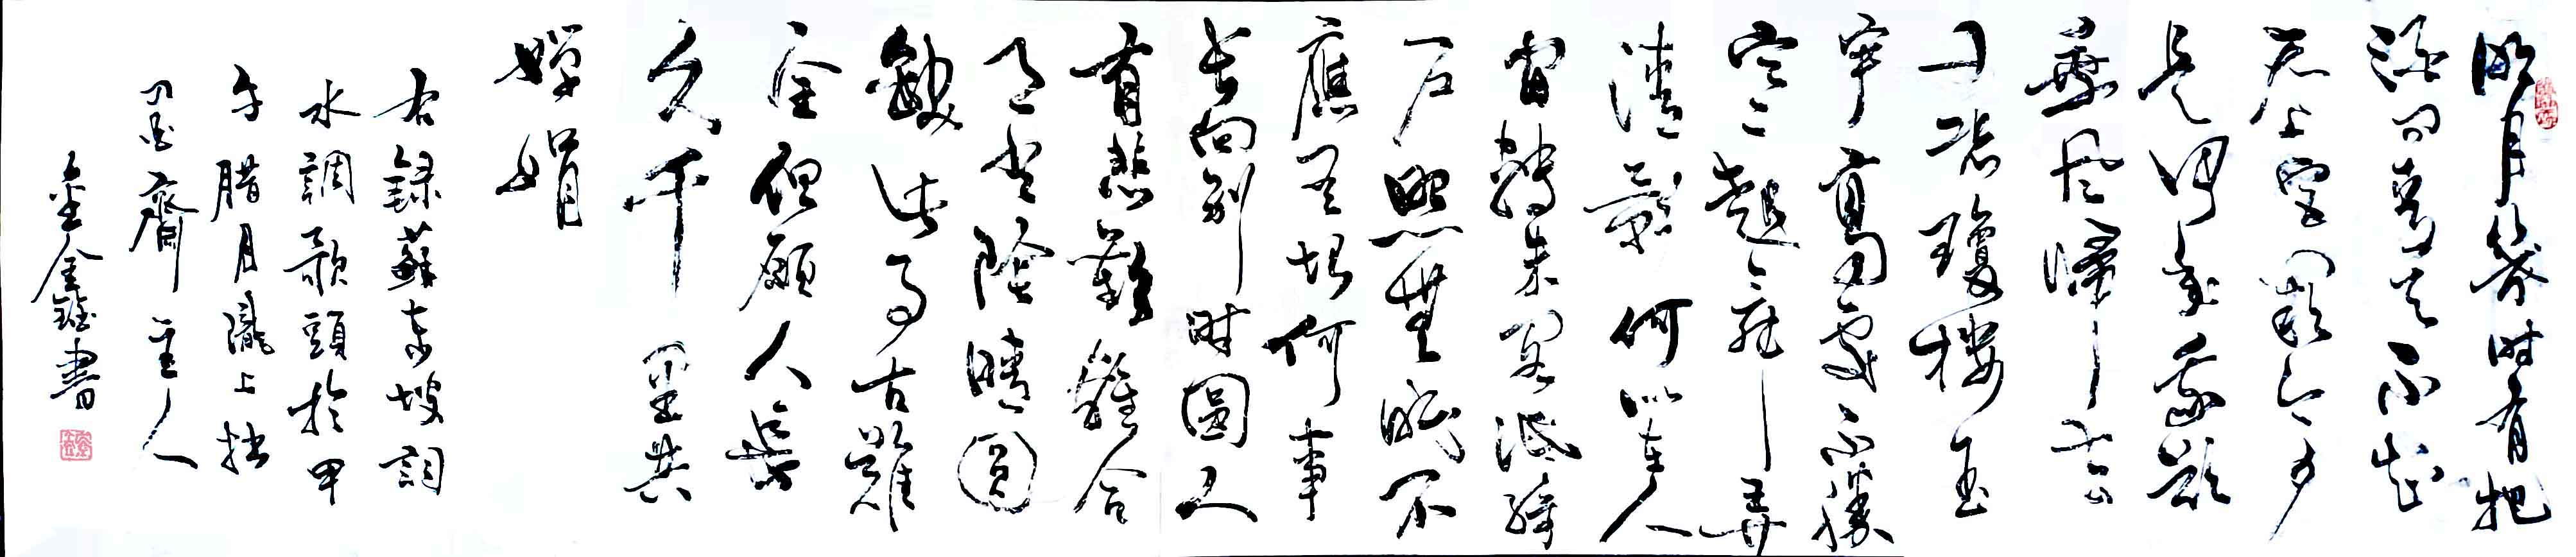 明月幾时有把
酒问青天不知
天上宫阙今夕
是何年我欲
乘风歸去
又恐瓊楼玉
宇高處不勝
寒起舞弄
清影何似在人
间轉朱阁低绮
户照無眠不
應有恨何事
长向别時圓人
有悲歡離合
月有陰晴圆
缺此事古難
全但願人長
久千里共
嬋娟
右録蘇東坡詞
水調歌頭於甲
午腊月隴上拙
齋主人
書